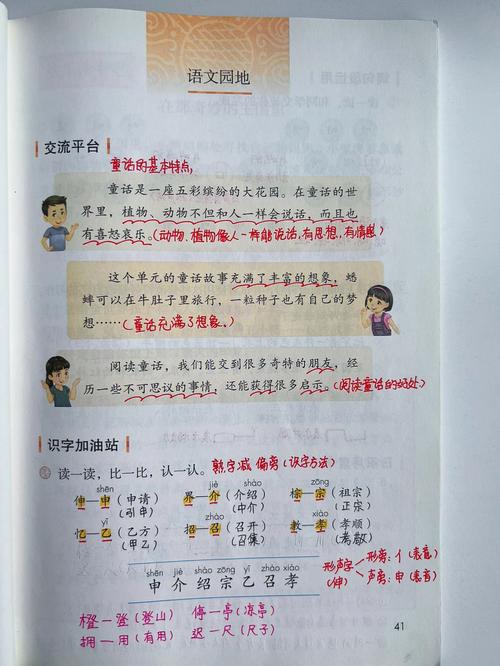 语文园地
交流平台
童话的基本特点,
童话是一座五彩缤纷的大花园。在童话的世
界里,植物、动物不但和人一样会说话,而且也
有喜怒哀乐。(动物、植物像人一样能说话,有思想,有情感)
这个单元的童话故事充满了丰富的想象,蟋
蟀可以在牛肚子里旅行,一粒种子也有自己的梦
想……(童话充满了想象。)
阅读童话,我们能交到很多奇特的朋友,经
历一些不可思议的事情,还能获得很多启示。(阅读童话的好处)
识字加油站
读一读,比一比,认一认。熟字减偏旁(识字方法)
shēn jiè shào zōng
伸—申(申请) 界—介(介绍) 棕—宗(祖宗)
(引申) (中介) (正宗)
yǐ zhào xiào
忆—乙(乙方) 招—召(召开) 教—孝(孝顺)
(甲乙) (召集) (孝敬)
shēn jiè shào zōng yǐ zhào xiào
申 介 绍 宗 乙 召 孝
形声字 形旁:亻(表意)
(伸) 声旁:申(表音)
橙—登(登山) 停—亭(凉亭)
拥—用(有用) 迟—尺(尺子)
41